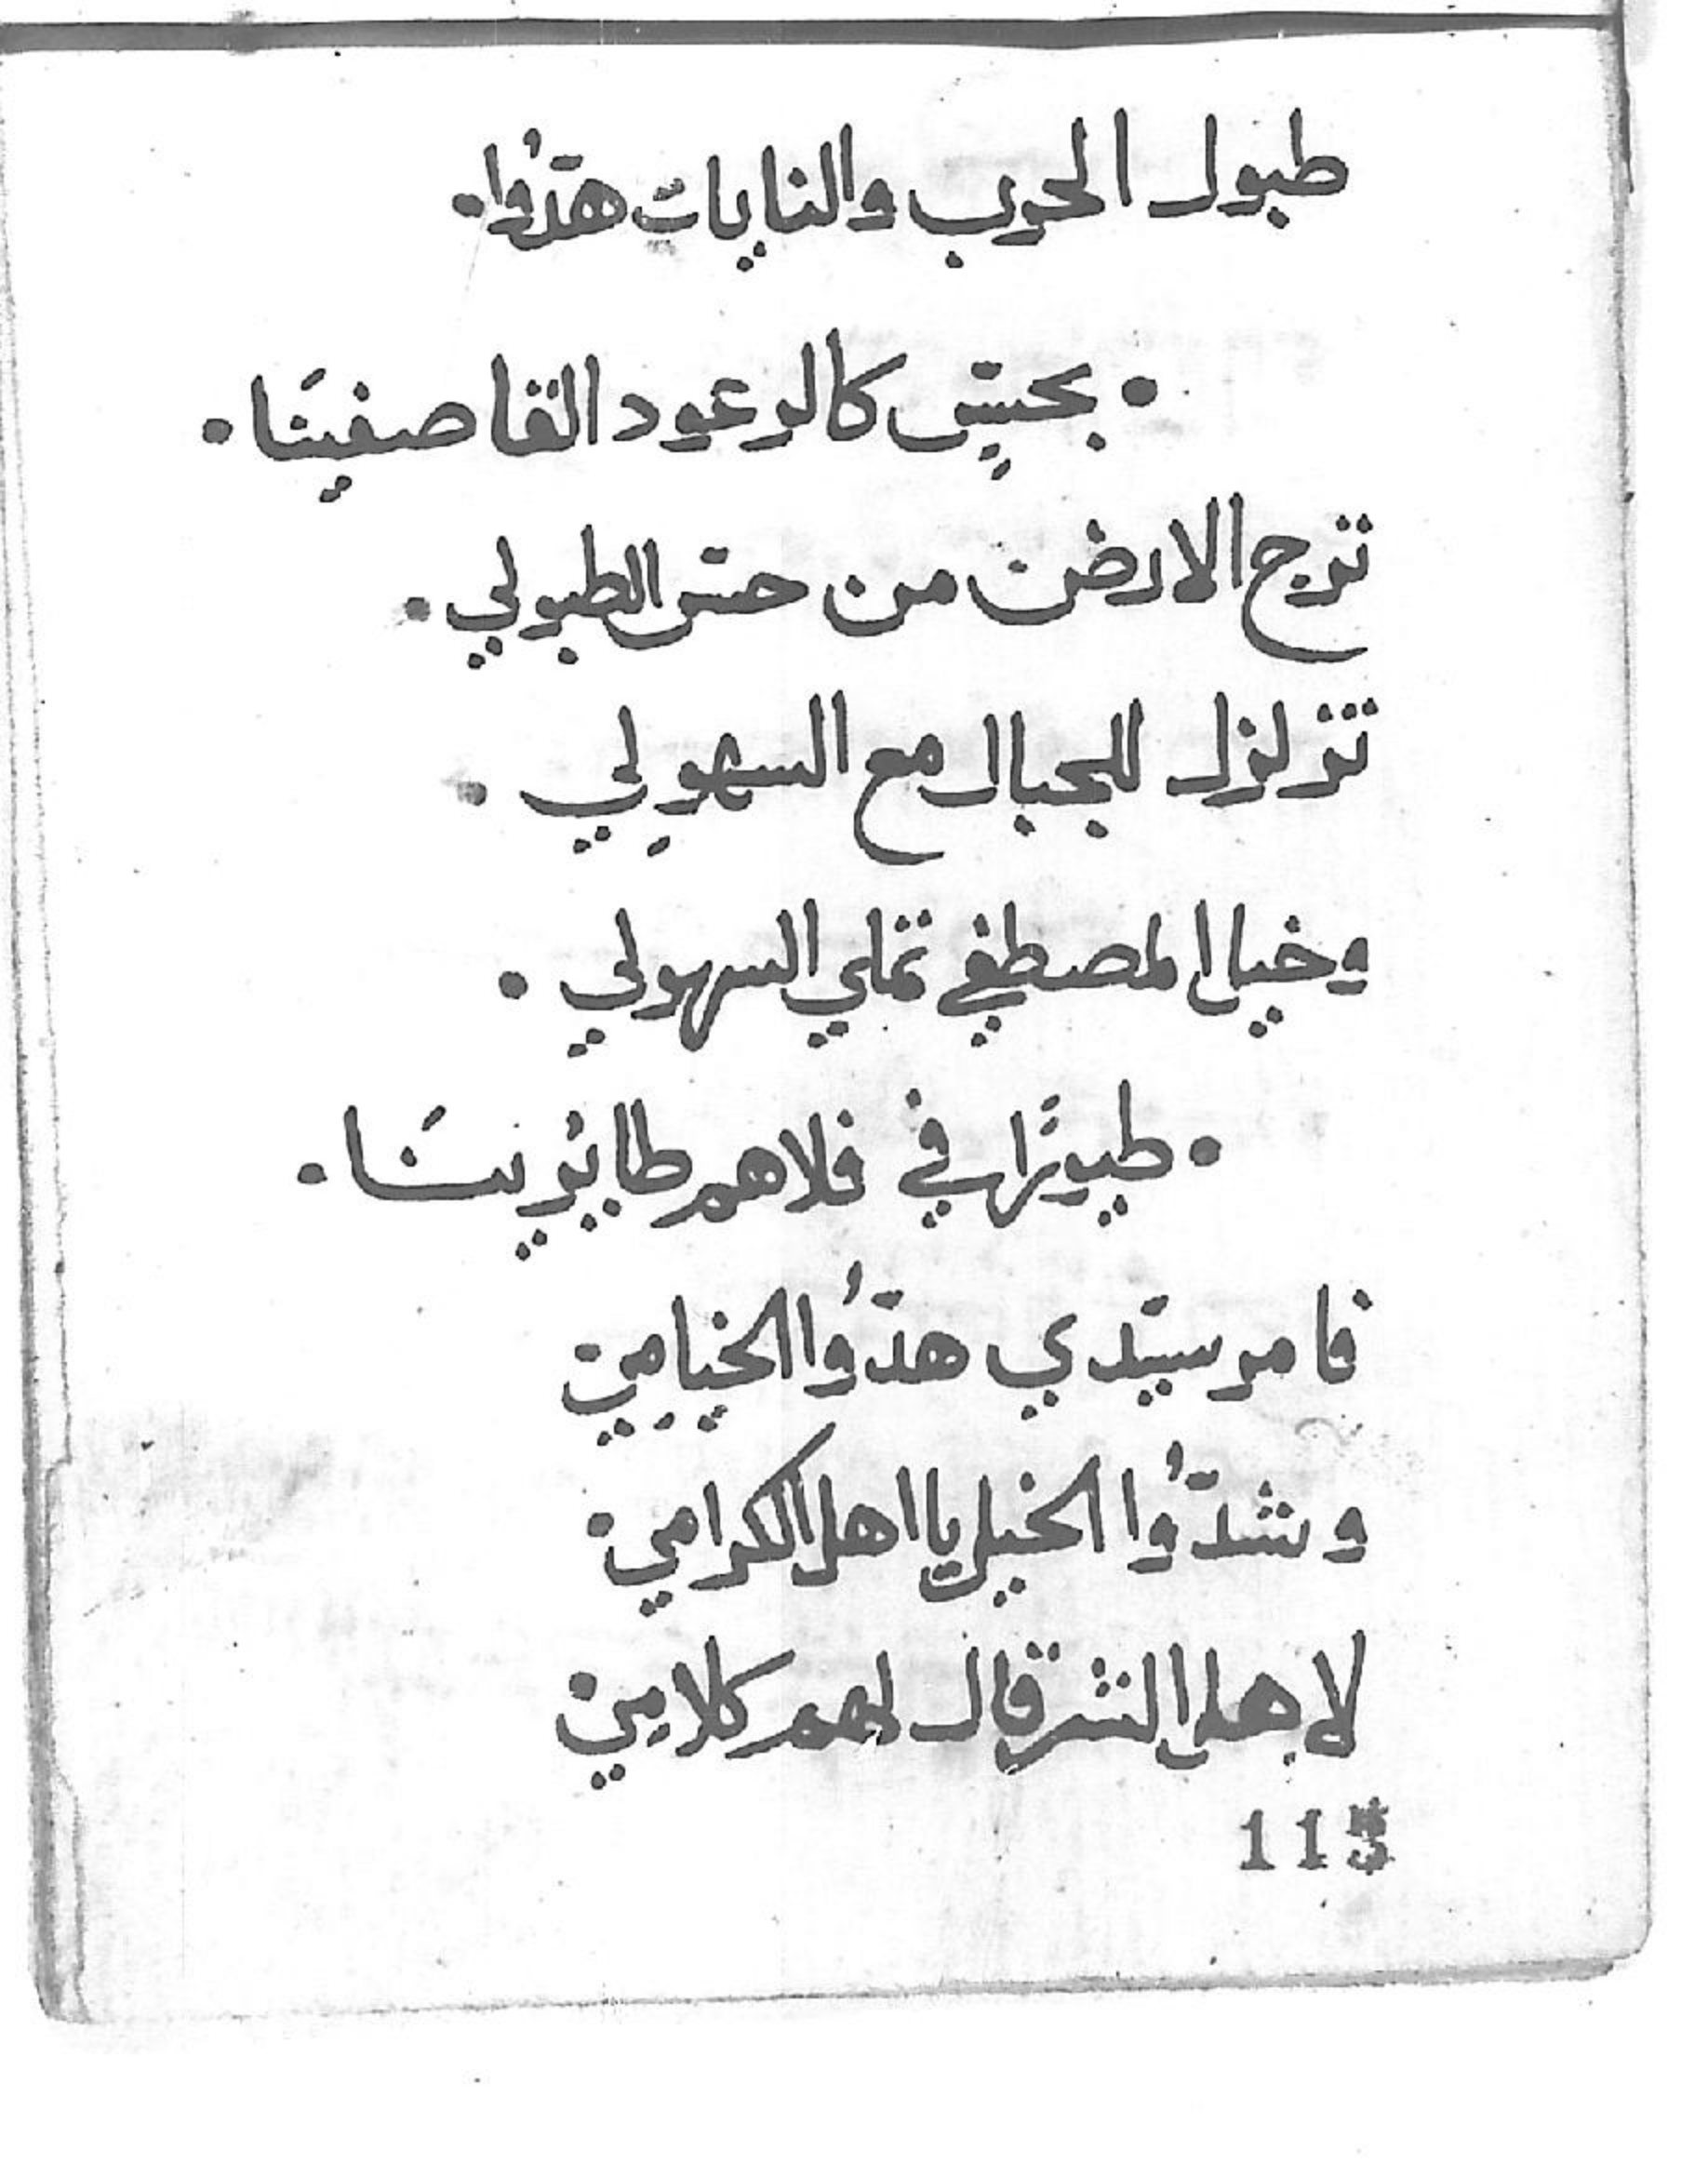 طبول الحرب والنايات هدّوُا.
• بحسٍّ كالرعود القاصفينَا •
ترج الارض من حسّ الطبولي •
تزلزل للجبال مع السهولِي •
وخيل المصطفي تملي السهولي •
• طيورًا في فلاهم طايرينَا •
فامر سيّدي هدّوُا الخيامِي
وشدّوُا الخيل يا اهل الكرامي
لاهل الشر قال لهم كلامِي
115